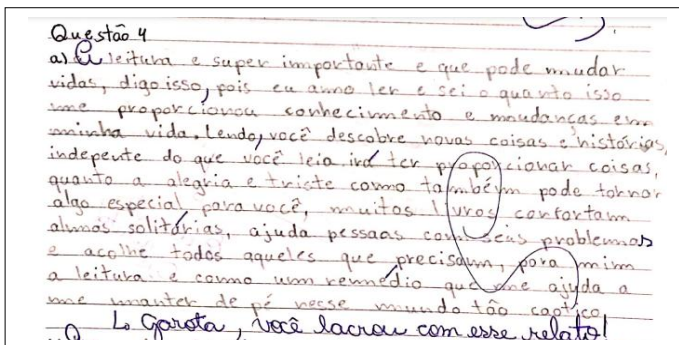 Questão 4
a) A leitura e super importante e que pode mudar
vidas, digo isso, pois eu amo ler e sei o quanto isso
me proporcionou conhecimento e mudanças em
minha vida. Lendo, você descobre novas coisas e histórias,
indepente do que você leia irá ter proporcionar coisas,
quanto a alegria e triste como também pode tornar
algo especial para você, muitos livros confortam
almas solitárias, ajuda pessoas com seus problemas
e acolhe todos aqueles que precisam, para mim
a leitura e como um remédio que me ajuda a
me manter de pé nesse mundo tão caotico
↳ Garota, você lacrou com esse relato!